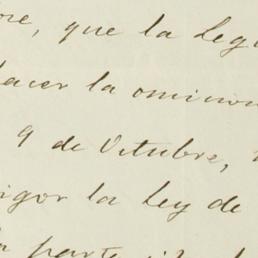 bre, que la Leg
hacer la omision
9 de Octubre,
igor la Ley de
parte